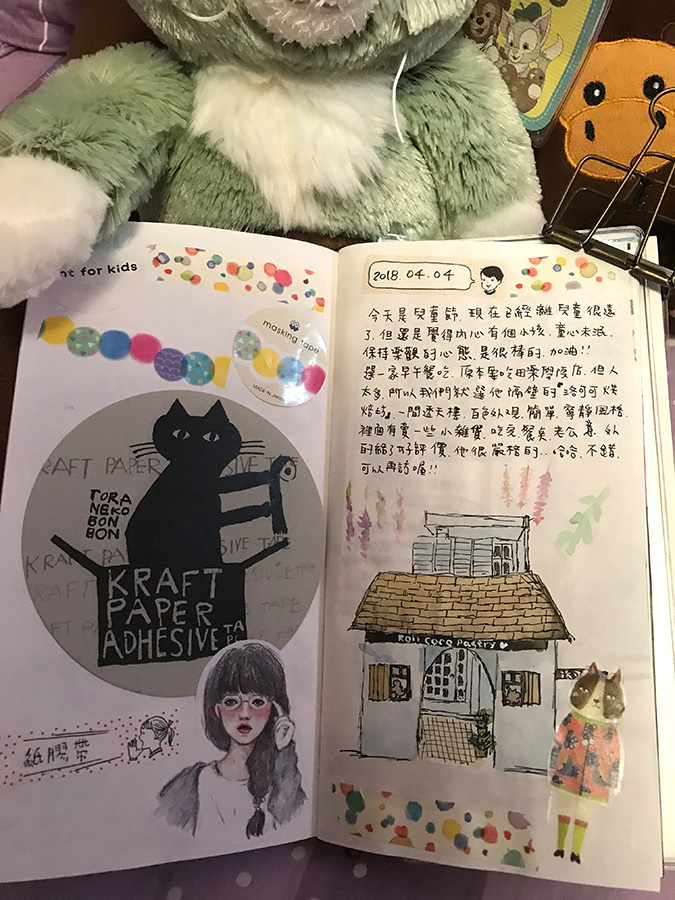 nt for kids
masking tape
MADE IN JAPAN
RAFT PAPER
TORA
NEKO
BON
BON
SIVE TAPE
KRAFT
PAPER
ADHESIVE TAPE
紙膠帶
2018.04.04
今天是兒童節.現在已經離兒童很遠
了.但還是覺得內心有個小孩.童心未泯.
保持樂觀的心態是很棒的.加油!!
選一家早午餐吃.原本要吃田樂學校店.但人
太多.所以我們就選他隔壁的"洛可可烘
焙坊".一間透天樓.白色外觀.簡單.寧靜風格
裡面有賣一些小雜貨.吃完餐桌老公意外
的給了好評價.他很嚴格的..哈哈.不錯.
可以再訪喔!!
coco Pastry